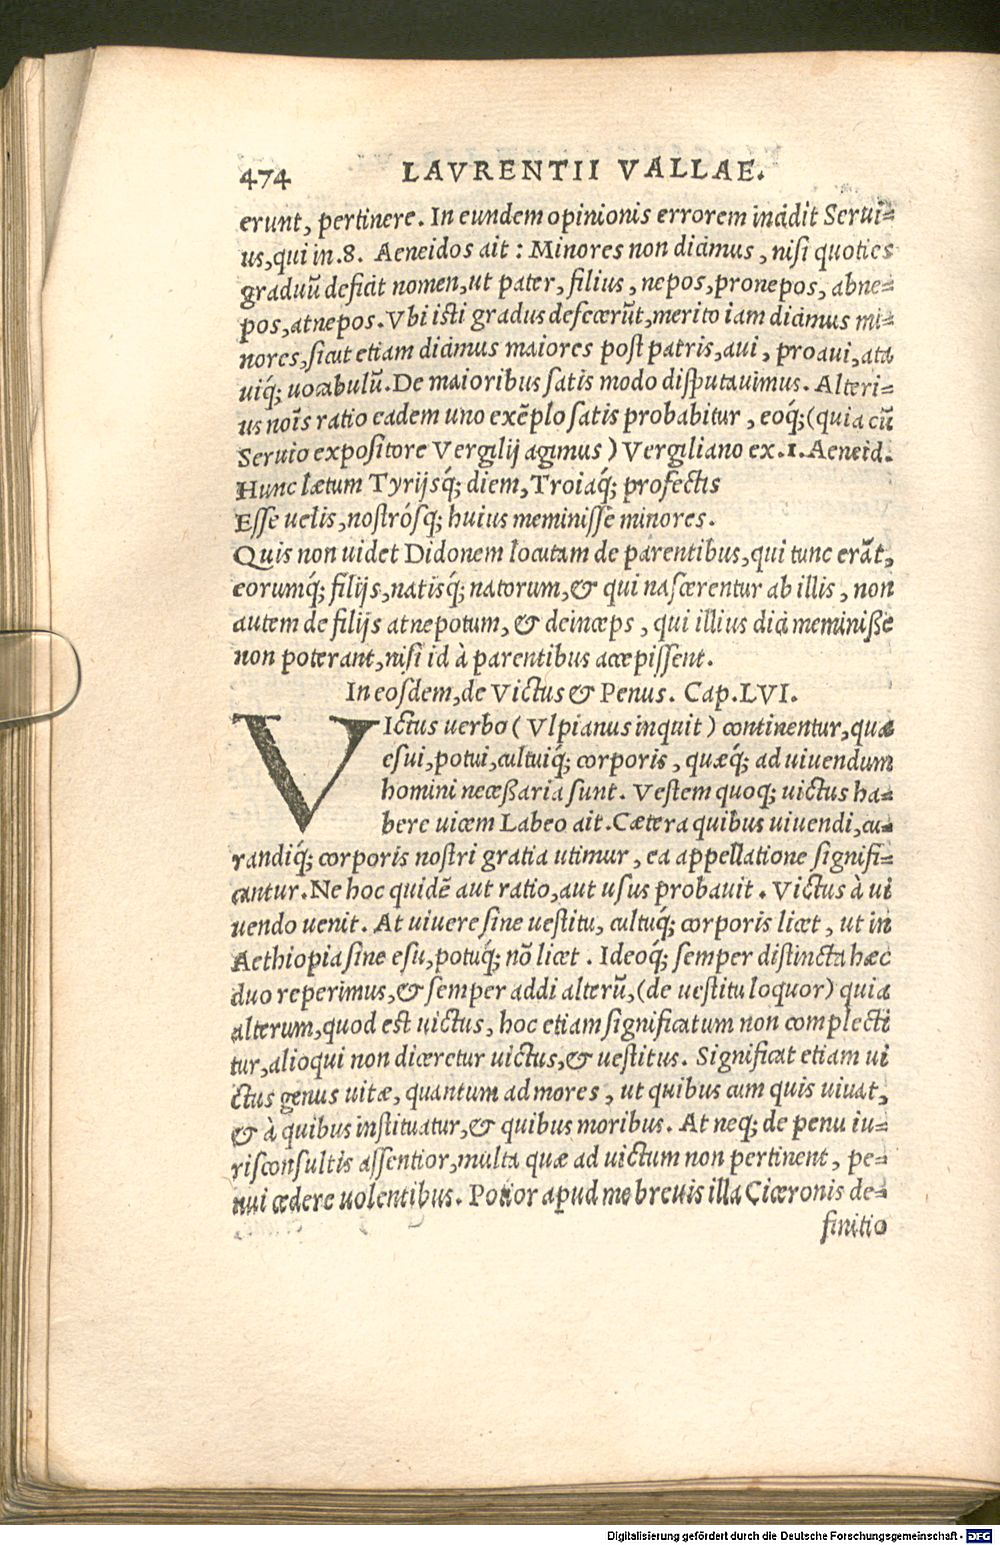 474 LAVRENTII VALLAE.
erunt, pertinere. In eundem opinionis errorem incidit Serui-
us, qui in .8. Aeneidos ait : Minores non dicimus, nisi quoties
graduũ deficit nomen, ut pater, filius, nepos, pronepos, abne-
pos, atnepos. Vbi isti gradus defecerũt, merito iam dicimus mi-
nores, sicut etiam dicimus maiores post patris, aui, proaui, ata
uiq́; uocabulũ. De maioribus satis modo disputauimus. Alteri-
us noĩs ratio eadem uno exẽplo satis probabitur, eoq́; (quia cũ
Seruio expositore Vergilij agimus) Vergiliano ex .1. Aeneid.
Hunc lætum Tyrijsq́; diem, Troiaq́; profectis
Esse uelis, nostrósq; huius meminisse minores.
Quis non uidet Didonem locutam de parentibus, qui tunc erãt,
eorumq́; filijs, natisq́; natorum, & qui nascerentur ab illis, non
autem de filijs atnepotum, & deinceps, qui illius diei meminiße
non poterant, nisi id à parentibus accepissent.
In eosdem, de Victus & Penus. Cap. LVI.
VIctus uerbo (Vlpianus inquit) continentur, quæ
esui, potui, cultuiq́; corporis, quæq́; ad uiuendum
homini neceßaria sunt. Vestem quoq; uictus ha-
bere uicem Labeo ait. Cætera quibus uiuendi, cu-
randiq́; corporis nostri gratia utimur, ea appellatione signifi-
cantur. Ne hoc quidẽ aut ratio, aut usus probauit. Victus à ui
uendo uenit. At uiuere sine uestitu, cultuq́; corporis licet, ut in
Aethiopia sine esu, potuq́; nõ licet. Ideoq́; semper distincta hæc
duo reperimus, & semper addi alterũ, (de uestitu loquor) quia
alterum, quod est uictus, hoc etiam significatum non complecti
tur, alioqui non diceretur uictus, & uestitus. Significat etiam ui
ctus genus uitæ, quantum ad mores, ut quibus cum quis uiuat,
& à quibus instituatur, & quibus moribus. At neq; de penu iu-
risconsultis assentior, multa quæ ad uictum non pertinent, pe-
nui cedere uolentibus. Potior apud me breuis illa Ciceronis de-
finitio
Digitalisierung gefördert durch die Deutsche Forschungsgemeinschaft - DFG